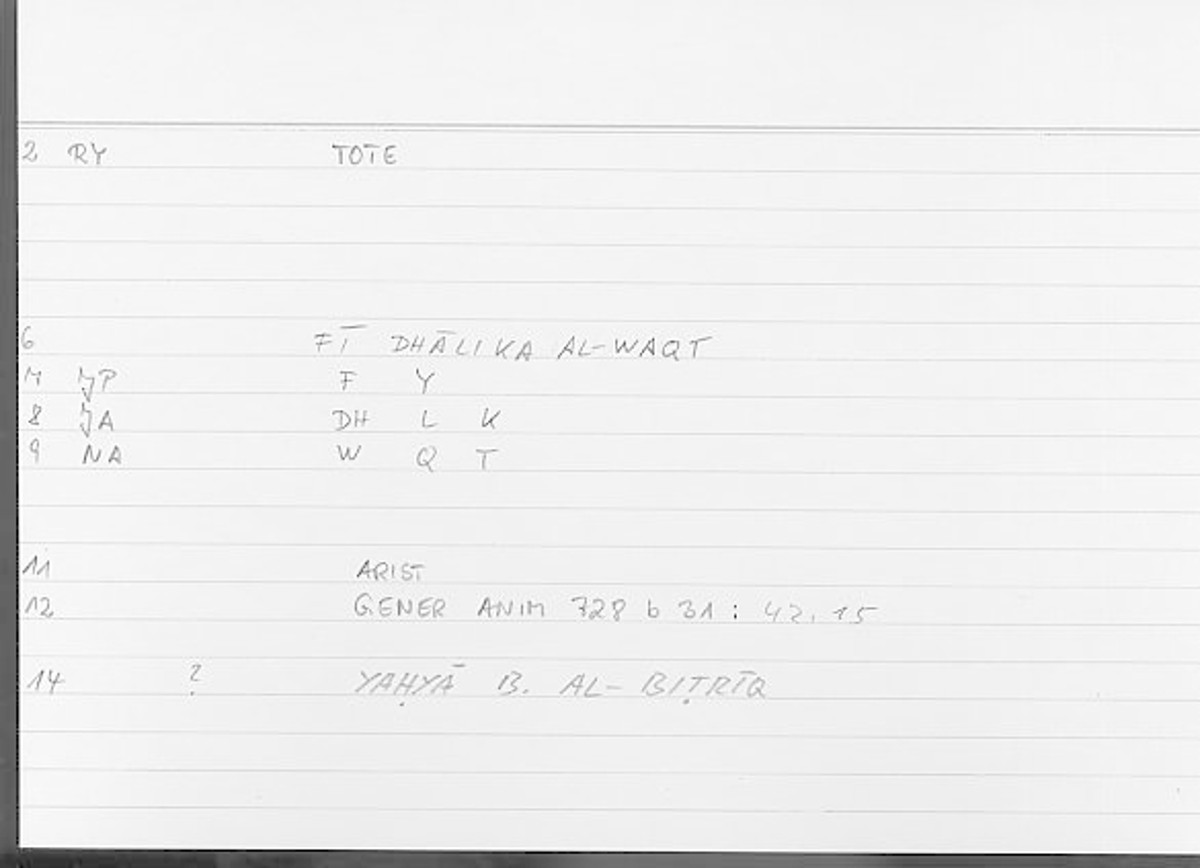 2 RY TOTE
6 FĪ DHĀLIKA AL-WAQT
7 JP F Y
8 JA DH L K
9 NA W Q T
11 ARIST
12 GENER ANIM 728 b 31 : 42,15
14 ? YAḤYĀ B. AL-BIṬRĪQ